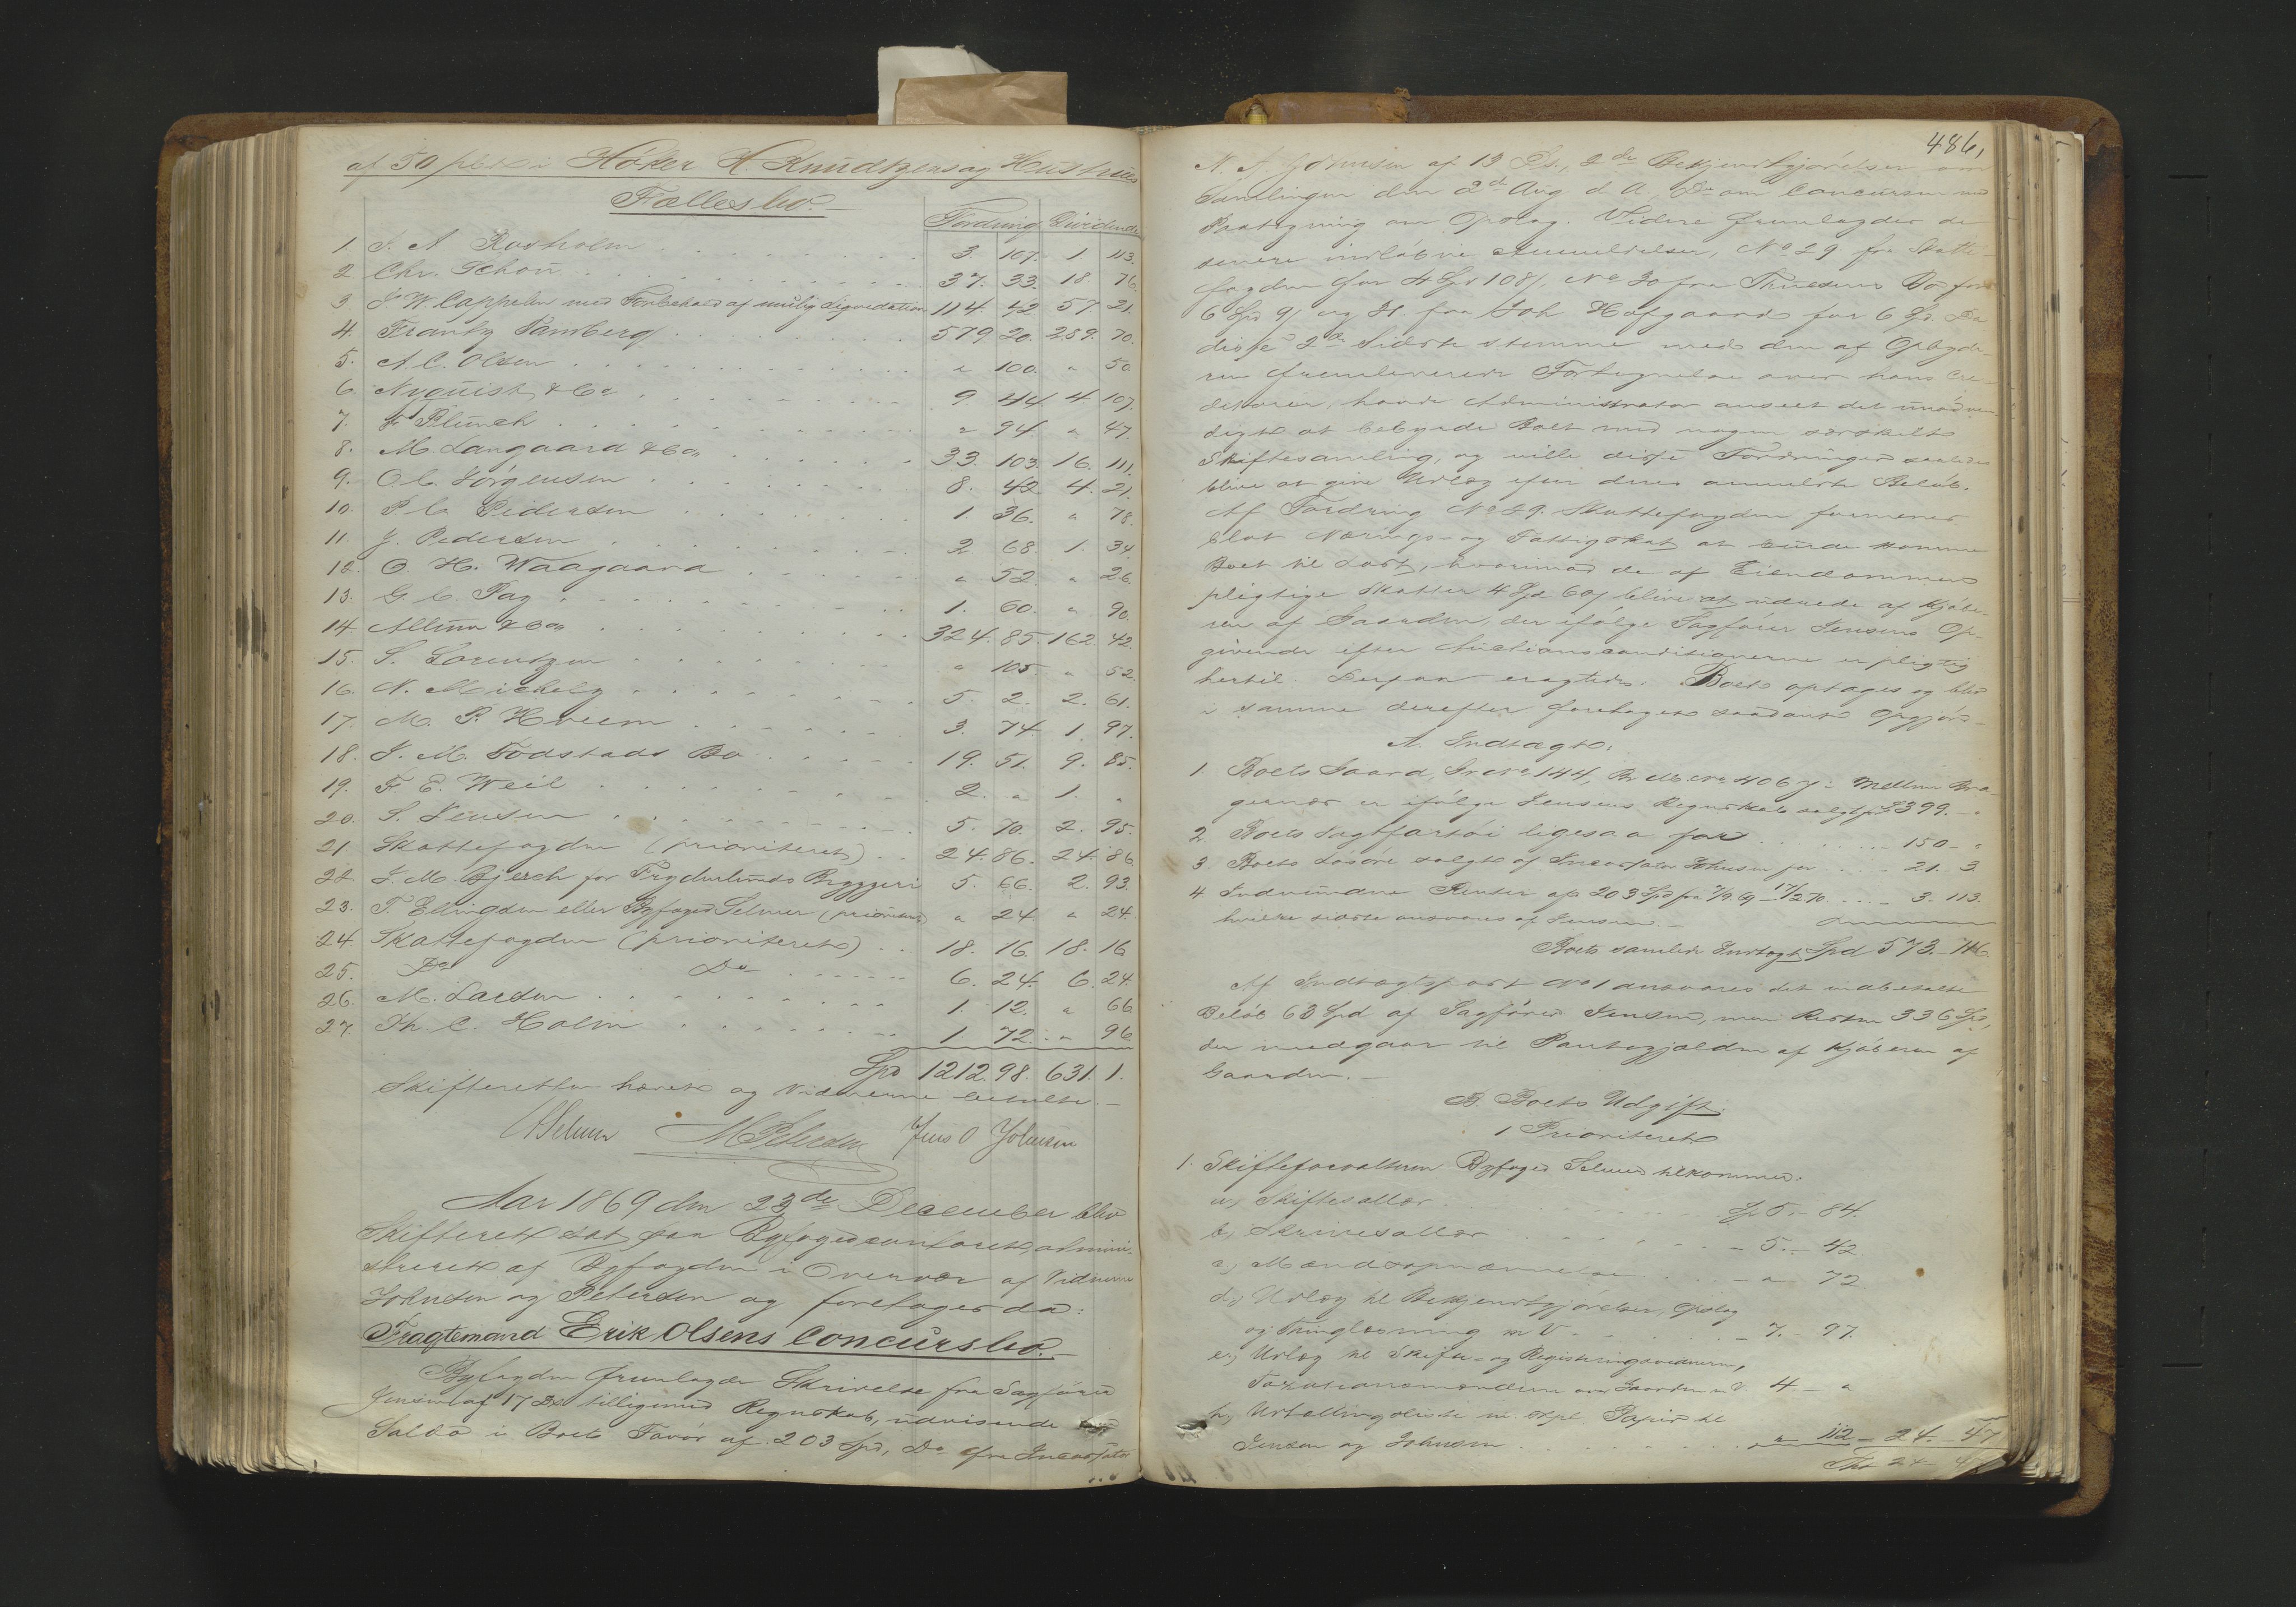 af 50 pCt i Høker H. Knudtzens og Hustrues
Fællesbo.
Fordring Dividende
1. S. A. Roxholm 3. 107. 1. 113.
2 Chr. Schou 37. 33. 18. 76.
3 J. W. Cappelen med Forbehold af mulig Liqvidation 114. 42 57 21.
4. Frantz Bamberg 579 20. 289. 70.
5. A. C. Olsen " 100. " 50
6. Nyquist & Co 9. 44 4. 107.
7. Plünch " 94. " 47.
8. M. Langaard & Co 33. 103. 16. 111.
9. O. C. Jørgensen 8. 42 4. 21.
10. P. C. Pedersen 1. 36. " 78.
11. J. Pedersen 2 68. 1. 34.
12. O. H. Waagaard " 52. " 26.
13. G. C. Fag 1. 60. " 90.
14. Allum & Co 324. 85. 162. 42.
15. S. Lorentzen " 105. " 52.
16. N. Michely 5. 2. 2. 61.
17. M. P. Hveem 3. 74. 1. 97.
18. J. M. Todstads Bo 19. 51. 9. 85.
19. F. E. Weil 2. " 1. "
20. S. Jensen 5. 70. 2. 95.
21. Skattefogden (prioriteret) 24. 86. 24. 86
22. J. M. Bjerch for Frydenlunds Bryggeri 5. 66. 2. 93.
23. T. Ellingsen eller Byfoged Selmer (prioriteret) " 24 " 24.
24. Skattefogden (prioriteret) 18. 16. 18. 16
25. Do Do 6. 24. 6. 24.
26. M. Larsen 1. 12. " 66
27. Th. C. Holm 1. 72. " 96
Spd 1212. 98. 631. 1.
Skifteretten hævet og Vidnerne betalte.
Selmer M Petersen Jens O Johnsen
Aar 1869 den 23de December blev
Skifteret sat paa Byfogedcontoret, admini-
streret af Byfogden i Overvær af Vidnerne
Johnsen og Petersen og foretoges da:
Fragtemand Erik Olsens Concursbo.
Byfogden fremlagde Skrivelse fra Sagfører
Jensen af 17 Ds tilligemed Regnskab, udvisende
Saldo i Boets Favør af 203 Spd, Do fra Incassator
486,
N. A. Johnsen af 13 Ds., 2de Bekjendtgjørelser om
Samlingen den 2de Aug d. A. Do om Concursen med
Paategning om Opslag. Videre fremlagdes de
senere indløbne Anmeldelser, No 29 fra Skatte-
fogden for 4 Spd 108 ß, No 30 fra Thuesens Bo for
6 Spd 9 ß og 31 fra Joh Hofgaard for 6 Spd. Da
disse 2de sidste stemme med den af Opbyde-
ren fremleverede Fortegnelse over hans Cre-
ditorer, havde Administrator anseet det unødven-
digt at bebyrde Boet med nogen særskilt
Skiftesamling, og ville disse Fordringer saaledes
blive at give Udlæg efter deres anmeldte Beløb.
Af Fordring No 29. Skattefogden formenes
blot Nærings- og Fattigskat at burde komme
Boet til Last, hvorimod de af Eiendommen
pligtige Skatter 4 Spd 60 ß blive at udrede af Kjøbe-
ren af Gaarden, der ifølge Sagfører Jensens Op-
givende efter Auctionsconditionerne er pligtig
hertil. Derpaa eragtedes: Boet optages og blev
i samme derefter foretaget saadant Opgjør.
A. Indtægt.
1 Boets Gaard, Gr No 144, Br No 406 y: Mellem Bra-
gernæs er ifølge Jensens Regnskab solgt for $ 399. "
2. Boets Jagtfartøi ligesaa for 150 "
3 Boets Løsøre solgt af Incassator Johnsen for 21. 3
4. Indvundne Renter af 203 Spd fra 7/9 69 – 17/2 70 3. 113.
hvilke sidste ansvares af Jensen.
Boets samlede Indtægt Spd 573. 116
Af Indtægtspost No 1 ansvares det indbetalte
Beløb 63 Spd af Sagfører Jensen, men Resten 336 Spd,
der medgaar til Pantegjælden af Kjøberen af
Gaarden.
B. Boets Udgift.
1 Prioriteret
1. Skifteforvalteren Byfoged Selmer tilkommer:
a, Skiftesallær Sp 5. 84.
b, Skriversallær 5. 42
c, Mændsopnævnelse " 72
d, Udlæg til Bekjendtgjørelser, Opslag
og Thinglæsning m V. 7. 97.
e, Udlæg til Skifte- og Registreringsvidnerne,
Taxationsmændene over Gaarden m V 4. "
f, Udtællingsliste m. stpl. Papir til
Jensen og Johnsen " 112 24. 47
Trsp 24 47